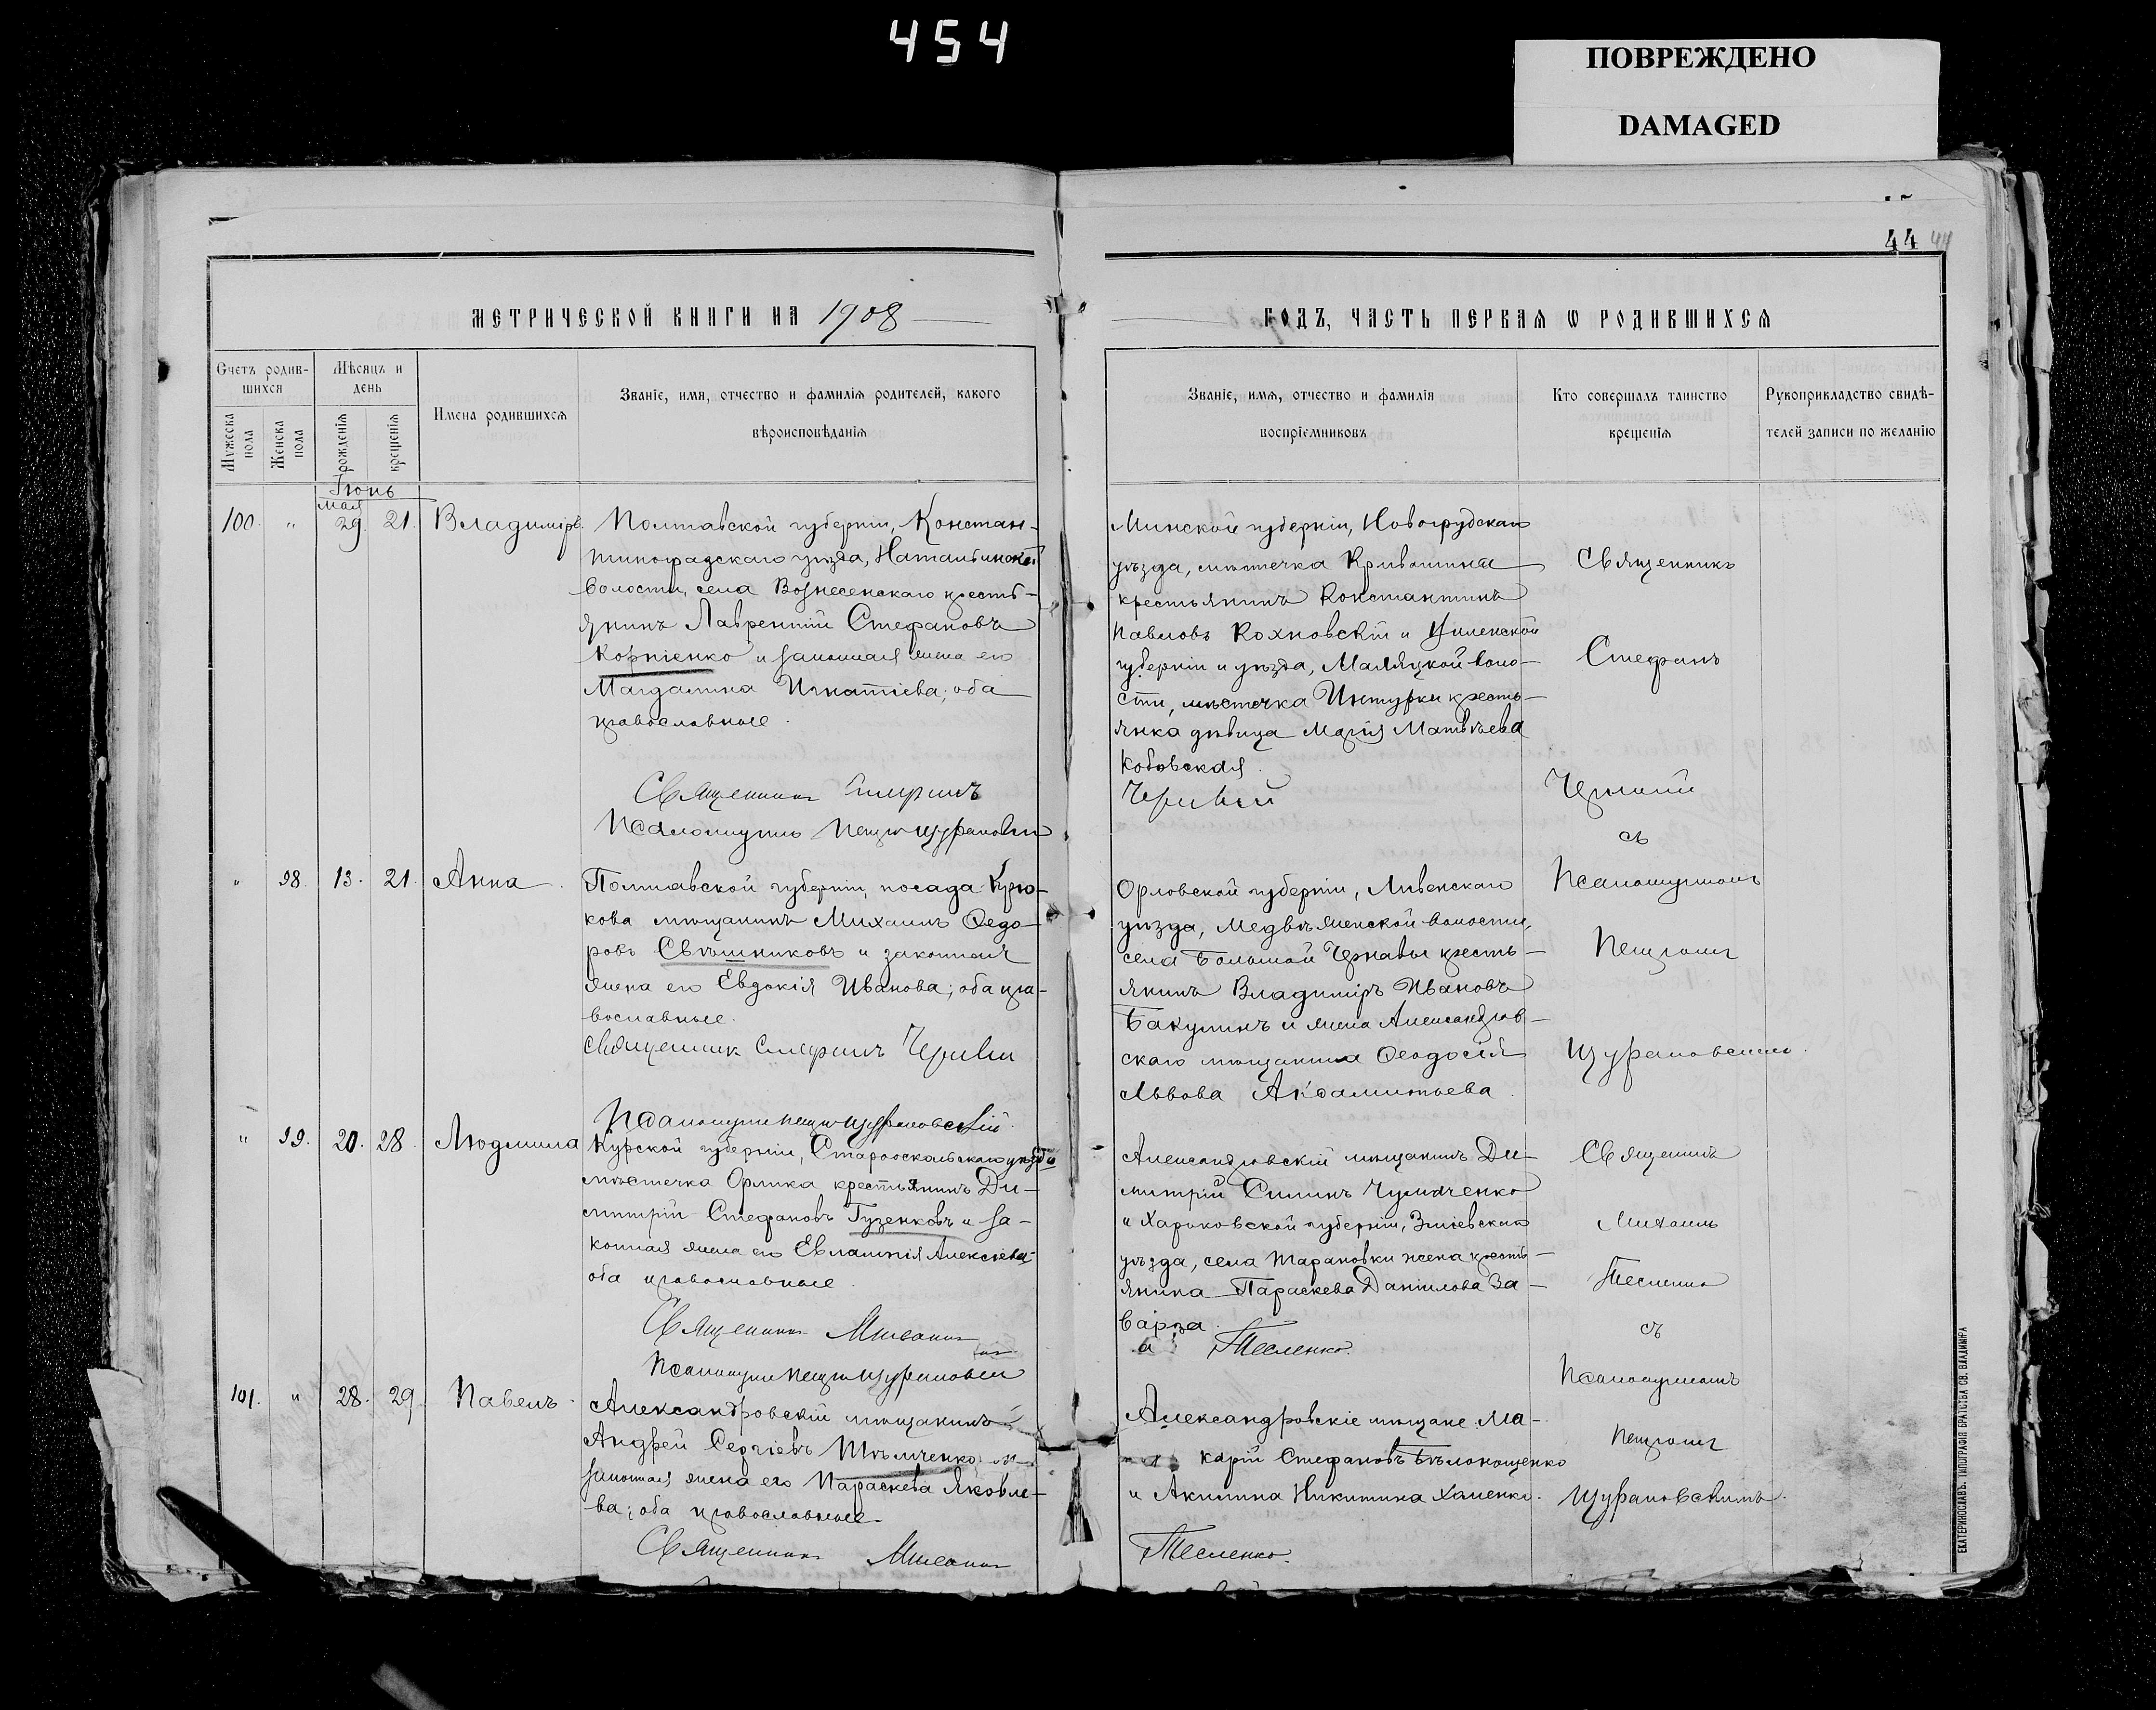 454
ПОВРЕЖДЕНО
DAMAGED
44 44
МЕТРИЧЕСКОЙ КНИГИ НА 1908
ГОДЪ, ЧАСТЬ ПЕРВАЯ Ѡ РОДИВШИХСЯ
Счетъ родив-
шихся
Мѣсяцъ и
день
Мужеска
пола
Женска
пола
рожденія
крещенія
Имена родившихся
Званіе, имя, отчество и фамилія родителей, какого
вѣроисповѣданія
Званіе, имя, отчество и фамилія
воспріемниковъ
Кто совершалъ таинство
крещенія
Рукоприкладство свидѣ-
телей записи по желанію
Іюнь
мая
100. " 29. 21. Владиміръ.
Полтавской губерніи, Констан-
тиноградскаго уѣзда, Натальинской
волости, села Вознесенскаго кресть-
янинъ Лаврентій Стефановъ
Корніенко и законная жена его
Магдалина Игнатіева; оба
православные.
Священникъ Стефанъ
Псаломщикъ Петръ Щурановскій
Минской губерніи, Новогрудскаго
уѣзда, мѣстечка Кривошина
крестьянинъ Константинъ
Павловъ Кохновскій и Виленской
губерніи и уѣзда, Маляцкой воло-
сти, мѣстечка Интурки кресть-
янка дѣвица Марія Матвѣева
Кобовская.
Черный
Священникъ
Стефанъ
Черный
съ
Псаломщикомъ
Петромъ
Щурановскимъ.
" 98. 13. 21. Анна.
Полтавской губерніи, посада Крю-
кова мѣщанинъ Михаилъ Ѳедо-
ровъ Свѣшниковъ и законная
жена его Евдокія Иванова; оба пра-
вославные.
Священникъ Стефанъ Черный
Псаломщикъ Петръ Щурановскій.
Орловской губерніи, Ливенскаго
уѣзда, Медвѣженской волости,
села Большой Чернавы кресть-
янинъ Владиміръ Ивановъ
Бакулинъ и жена Александров-
скаго мѣщанина Ѳеодосія
Львова
" 99. 20. 28. Людмила
Курской губерніи, Старооскольскаго уѣзда
мѣстечка Орлика крестьянинъ Ди-
митрій Стефановъ Гузенковъ и за-
конная жена его Евлампія Алексѣева;
оба православные.
Священникъ Михаилъ
Псаломщикъ Петръ Щурановскій
Александровскій мѣщанинъ Ди-
митрій Силинъ Чумаченко
и Харьковской губерніи, Зміевскаго
уѣзда, села Тарановки жена кресть-
янина Параскева Даніилова За-
варза.
Тесленко.
Священникъ
Михаилъ
Тесленко
съ
Псаломщикомъ
Петромъ
Щурановскимъ.
101. " 28. 29. Павелъ.
Александровскій мѣщанинъ
Андрей Сергіевъ и
законная жена его Параскева Яковле-
ва; оба православные.
Священникъ Михаилъ
Александровскіе мѣщане: Ма-
карій Стефановъ Бѣлокощенко
и Акилина Никитина Хоменко.
Тесленко.
ЕКАТЕРИНОСЛАВЪ. ТИПОГРАФІЯ БРАТСТВА СВ. ВЛАДИМІРА